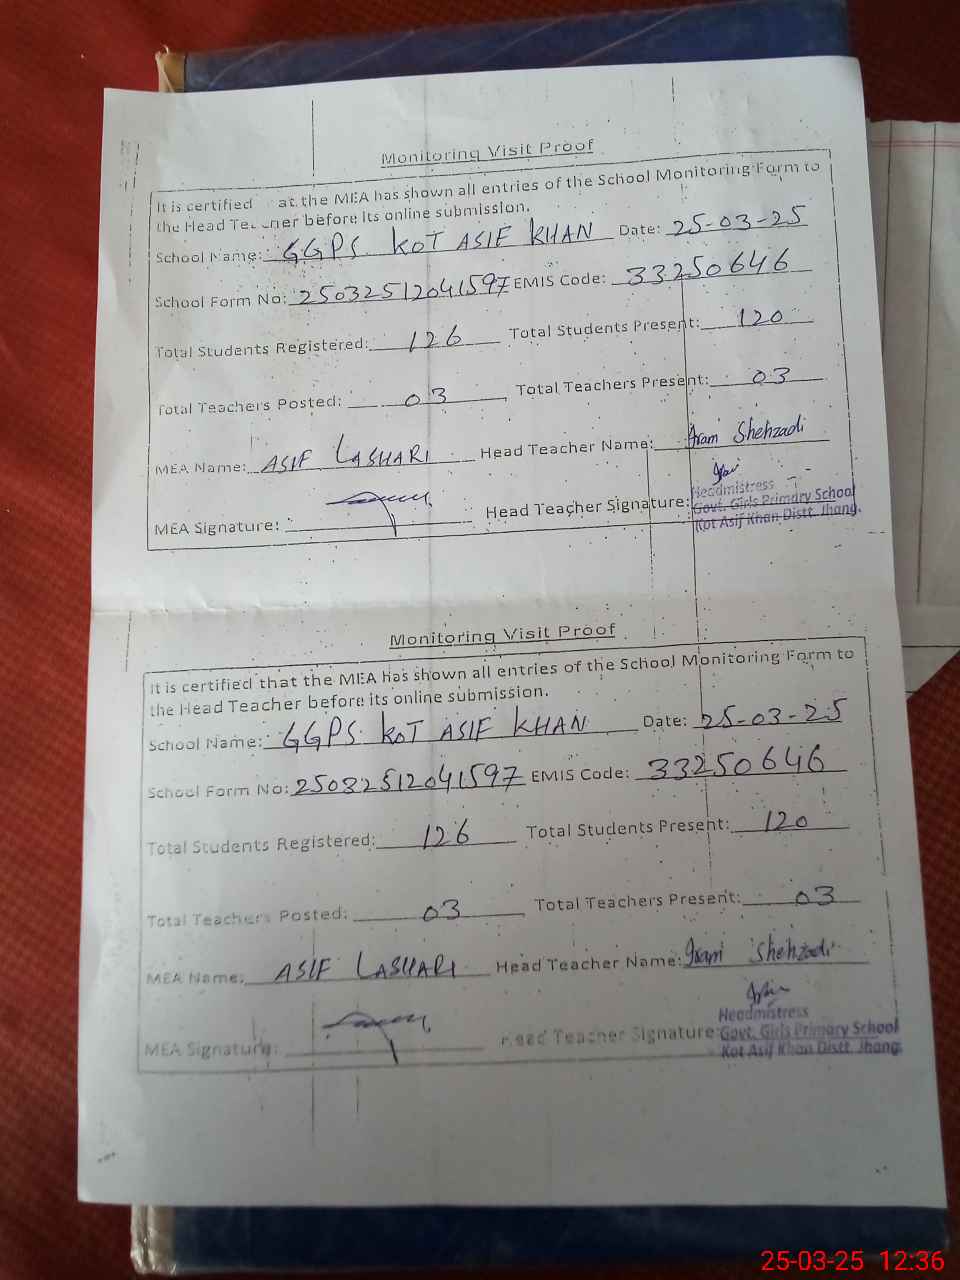 Monitoring Visit Proof
It is certified at the MEA has shown all entries of the School Monitoring Form to
the Head Teacher before its online submission.
School Name: GGPS KOT ASIF KHAN Date: 25-03-25
School Form No: 25032512041597 EMIS Code: 33250646
Total Students Registered: 126 Total Students Present: 120
Total Teachers Posted: 03 Total Teachers Present: 03
MEA Name: ASIF LASHARI Head Teacher Name: Iram Shehzadi
MEA Signature: Head Teacher Signature:
Headmistress
Govt. Girls Primary School
Kot Asif Khan Distt. Jhang.
Monitoring Visit Proof
It is certified that the MEA has shown all entries of the School Monitoring Form to
the Head Teacher before its online submission.
School Name: GGPS KOT ASIF KHAN Date: 25-03-25
School Form No: 25032512041597 EMIS Code: 33250646
Total Students Registered: 126 Total Students Present: 120
Total Teachers Posted: 03 Total Teachers Present: 03
MEA Name: ASIF LASHARI Head Teacher Name: Iram Shehzadi
MEA Signature: Head Teacher Signature:
Headmistress
Govt. Girls Primary School
Kot Asif Khan Distt. Jhang.
25-03-25 12:36